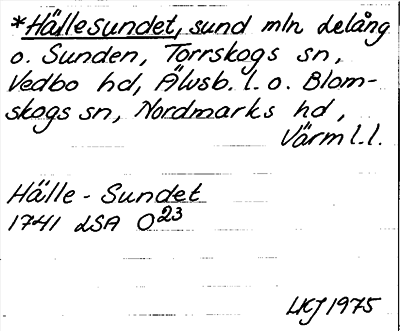 *Hällesundet, sund mln Lelång
o. Sunden, Torrskogs sn,
Vedbo hd, Älvsb. l. o. Blom-
skogs sn, Nordmarks hd,
Värml. l.
Hälle-Sundet
1741 LSA O23
LKJ 1975